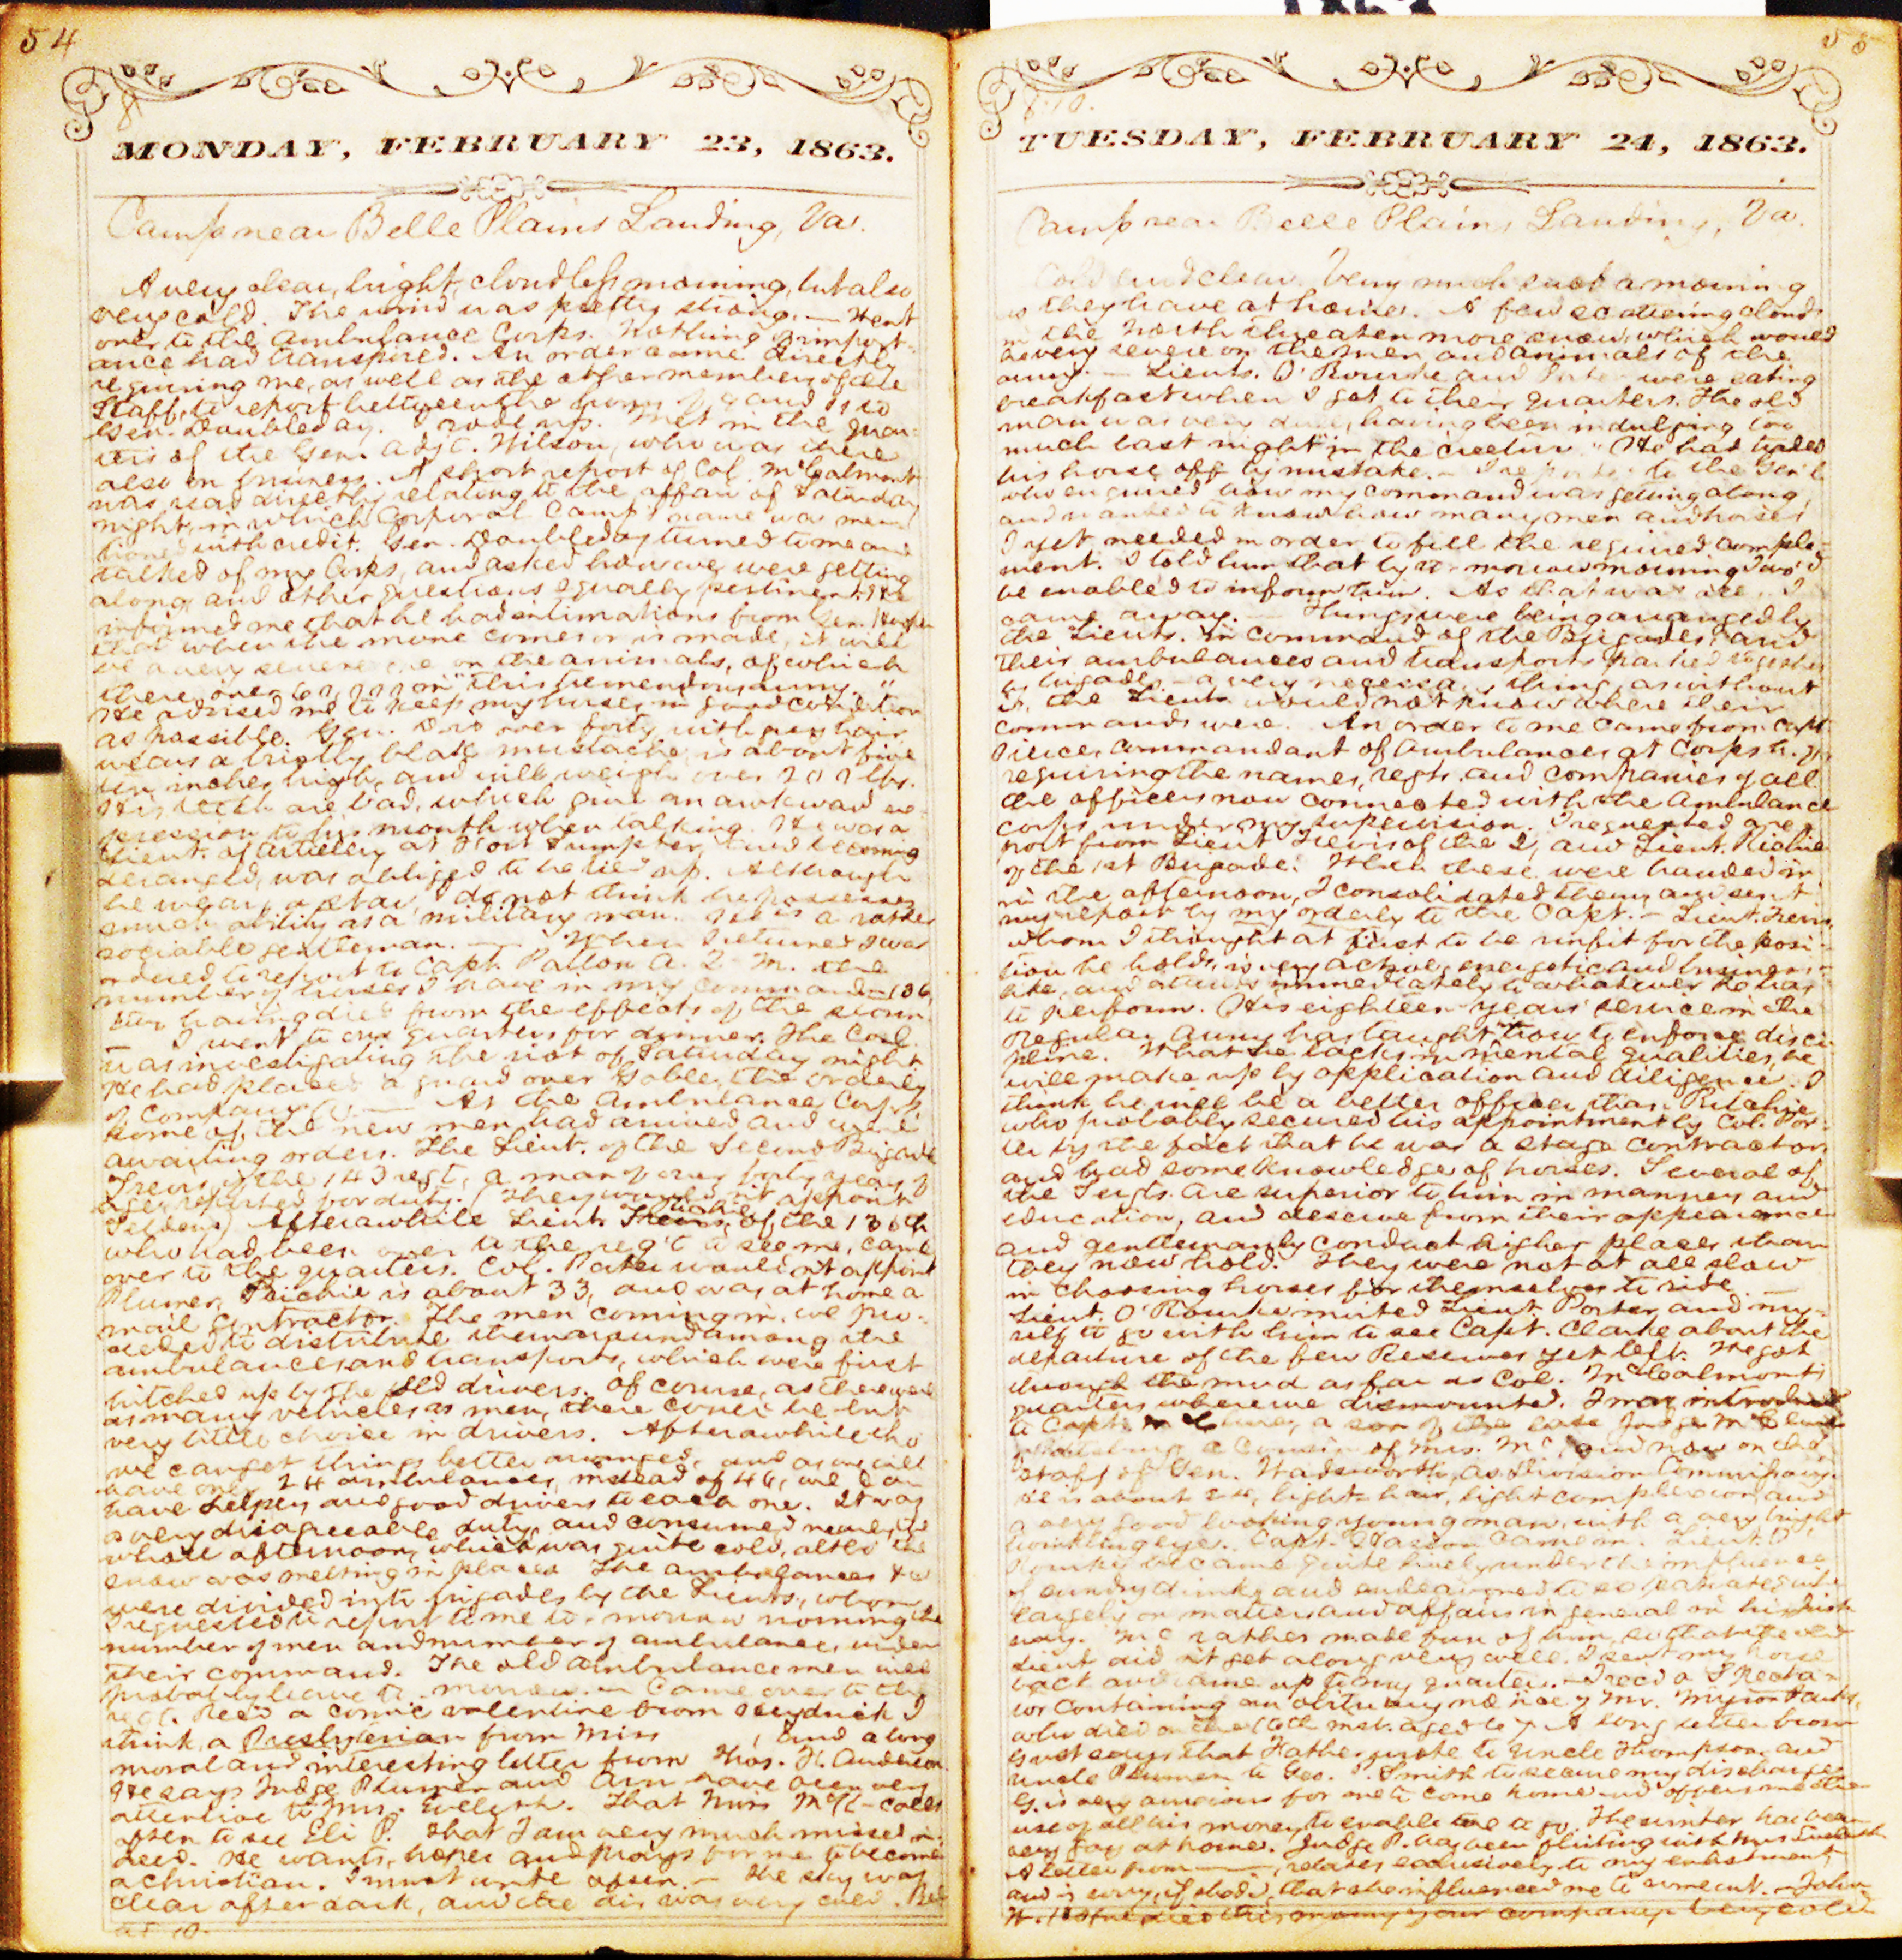 54
MONDAY, FEBRUARY 23, 1863.
Camp near Belle Plains Landing, Va.
A very clear, bright, cloudless morning, but also
very cold. The wind was pretty strong. — Went
over to the Ambulance Corps. Nothing of import-
ance had transpired. An order came directly
requiring me, as well as the other members of the
Staff, to report between the hours of 9 and 11 to
Gen. Doubleday. I rode up. Met in the quar-
ters of the Gen. Adjt. Wilson, who was there
also on business. A short report of Col. McCalmont
was read directly relating to the affair of Saturday
night, in which Corporal Camp's name was men-
tioned with credit. Gen. Doubleday turned to me and
talked of my Corps, and asked how we were getting
along, and other questions equally pertinent. He
informed me that he had intimations from Gen. Hooker
that when the move comes or is made, it will
be a very severe one on the animals, of which
there over 60,000 in "this tremendous army."
He advised me to keep my horses in good condition
as possible. Gen. D. is over forty, with grey hair,
wears a bristly black mustache, is about five
ten inches high, and will weigh over 200 lbs.
His teeth are bad, which give an awkward ex-
pression to his mouth when talking. He was a
Lieut. of Artillery at Fort Sumpter, and becoming
deranged, was obliged to be tied up. Although
he wears a star, I do not think he possesses
much ability as a military man. He is a rather
sociable gentleman. — When I returned I was
ordered to report to Capt. Patton A. Q. M. the
number of horses I have in my command — 136,
having died from the effects of the storm.
— I went to our quarters for dinner. The Col.
was investigating the riot of Saturday night
He had placed a guard over Goble, the orderly
of Company — At the Ambulance Corps,
some of the new men had arrived and were
awaiting orders. The Lieut. of the Second Brigade
of the 143 regt, a man of over forty years of
age, reported for duty. (They would n't appoint
Selden) After awhile Lieut. Richie of the 130th
who had been over to the reg't to see me, came
over to the quarters. Col. Porter would n't appoint
Plumer. Richie is about 33, and was at home a
mail contractor. The men coming in, we pro-
ceeded to distribute them around among the
ambulances and transports, which were first
hitched up by the old drivers. Of course, as there were
as many vehicles as men, there could be but
very little choice in drivers. After awhile tho'
we can get things better arranged, and as we will
have only 24 ambulances, instead of 46, we can
have helpers and good drivers to each one. It was
a very disagreeable duty, and consumed nearly the
whole afternoon, which was quite cold, altho' the
snow was melting in places. The ambulances &c
were divided into brigades by the Lieuts., whom
I requested to report to me to-morrow morning the
number of men and number of ambulances, under
their command. The old ambulance men will
probably leave to-morrow. — Came over to the
regt. Rec'd a comic valentine from I
think, a Presbyterian from Miss , and a long
moral and interesting letter from Thos. H. Anderson
He says Judge Plumer and Arn have been very
attentive to Mrs. Evelyth. That Miss McK— calls
often to see Eli P. That I am very much missed in-
deed. He wants, hopes and prays for me to become
a christian. I must write often. — The sky was
clear after dark, and the air was very cold. Bed
at 10.
55
TUESDAY, FEBRUARY 24, 1863.
Camp near Belle Plains Landing, Va.
Cold and clear. Very much such a morning
as they have at home. A few scattering clouds
in the North threaten more snow, which would
be very severe on the men and animals of the
army. — Lieuts. O'Rourke and Porter were eating
breakfast when I got to their quarters. The old
man was very dull, having been indulging too
much last night in the "creetur." He had traded
his horse off by mistake. — I reported to the Gen'l
who enquired how my command was getting along,
and wanted to know how many men and horses
I yet needed in order to fill the required comple-
ment. I told him that by to-morrow morning I wo'd
be enabled to inform him. As that was all, I
came away. — Things were being arranged by
the Lieuts. in command of the Brigades and
their ambulances and transports parked together
by brigades, — a very necessary thing, as without
it, the Lieuts would not know where their
commands were. An order to me came from Capt.
Pierce, commandant of ambulances at Corps H. Q.,
requiring the names, regts, and companies of all
the officers now connected with the Ambulance
corps under my supervision. I requested a re-
port from Lieut of the 2, and Lieut. Richie
of the 1st Brigade. When these were handed in
in the afternoon, I consolidated them and sent
my report by my orderly to the Capt. — Lieut.
whom I thought at first to be unfit for the posi-
tion he holds, is very active, energetic and business-
like, and attends immediately to whatever he has
to perform. His eighteen years' service in the
regular army has taught how to enforce disci-
pline. What he lacks in mental qualities, he
will make up by application and diligence. I
think he will be a better officer than Ritchie
who probably secured his appointment by Col. Por-
ter by the fact that he was a stage contractor,
and had some knowledge of horses. Several of
the Sergts. are superior to him in manners and
education, and deserve from their appearance
and gentlemanly conduct higher places than
they now hold. They were not at all slow
in choosing horses for themselves to ride. —
Lieut. O'Rourke invited Lieut. Porter and my-
self to go with him to see Capt. Clarke about the
departure of the few Reserves yet left. We got
through the mud as far as Col. McCalmont's
quarters where we dismounted. I was introduced
to Capt. McClure, a son of the late Judge McClure
of Pittsburg, a cousin of Mrs. Mc , and now on the
Staff of Gen. Wadsworth, as Division Commissary.
He is about 24, light hair, light complexion, and
a very good looking young man, with a very bright
twinkling eye. Capt. came in. Lieut. O'
Rourke became quite lively under the influence
of sundry drinks and endeavored to expatiate quite
largely on matters and affairs in general in his Irish
way. Mc rather made fun of him, so that the old
Lieut did n't get along very well. I sent my horse
back and came up to my quarters. — Rec'd a Specta-
tor containing an obituary notice of Mr. Myron Parks,
who died on the 10th inst. aged 67. A long letter from
Gust says that Father wrote to Uncle Thompson and
Uncle Plumer to Geo. Smith to secure my discharge.
G. is very anxious for me to come home and offers me the
use of all his money, to enable me to go. The winter has been
very gay at home. Judge P. has been flirting with Mrs Evelyth
A letter from —, relates exclusively to my enlistment,
and is sorry, if she did, that she influenced me to come out. — John
died this morning of our company. Very cold.